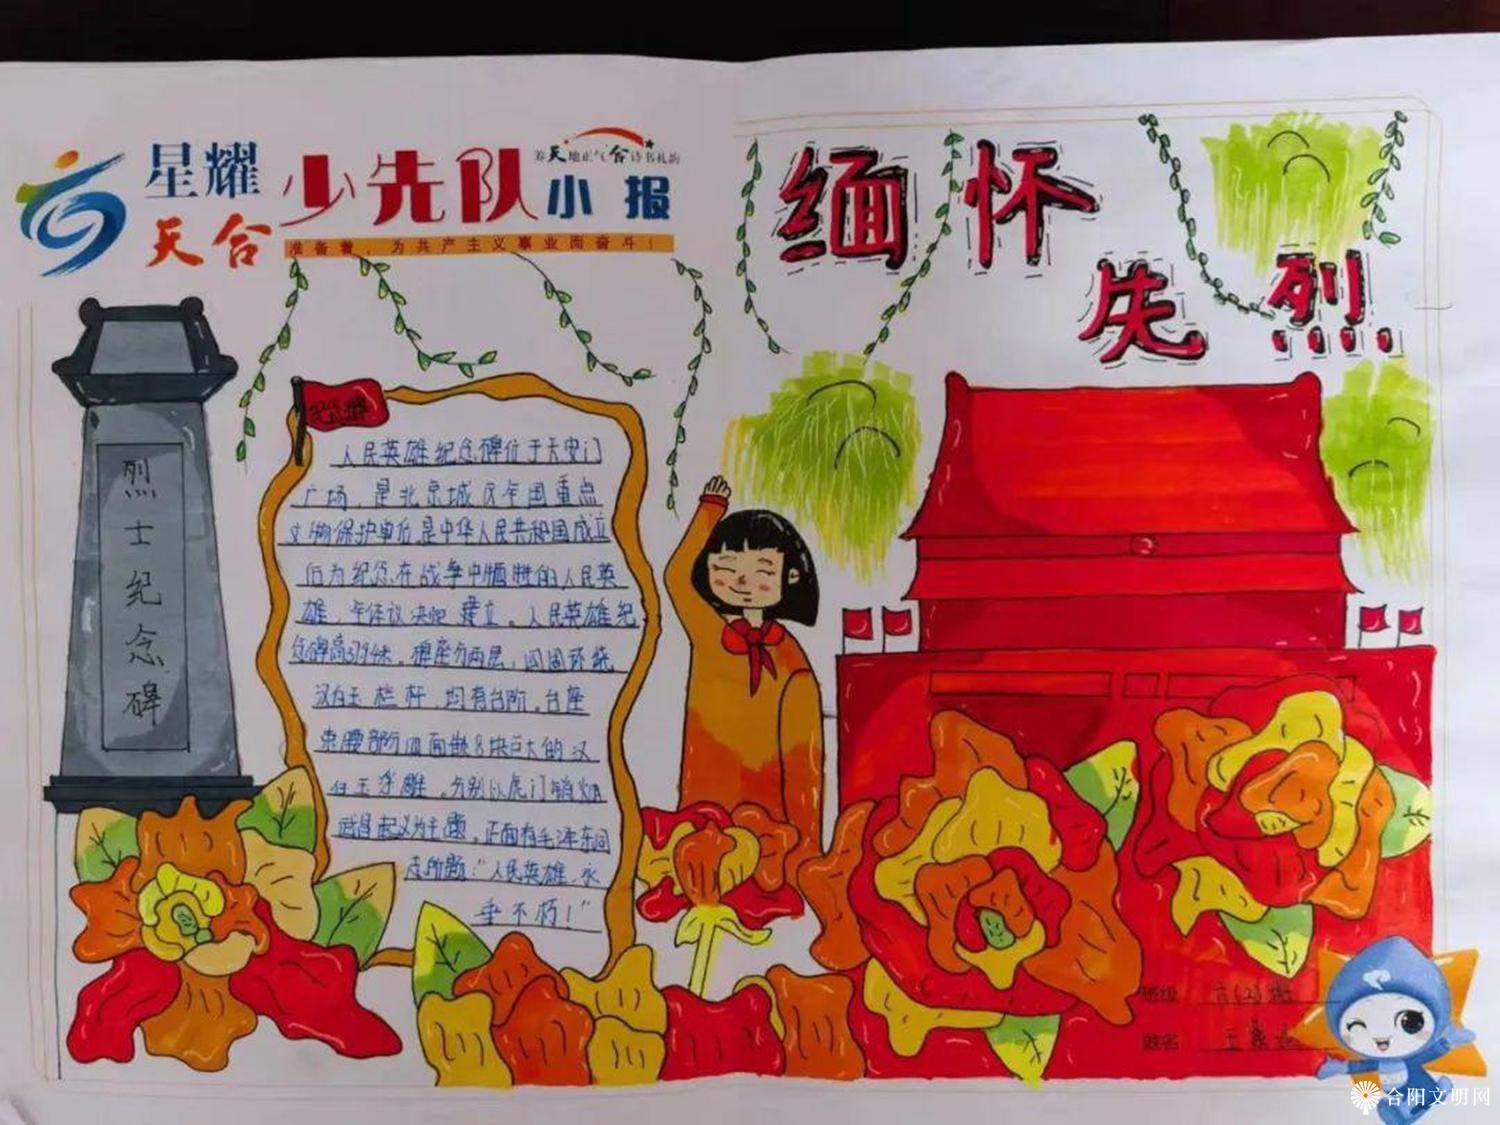 星耀
天合
少先队
小报
养天地正气合诗书礼韵
准备着，为共产主义事业而奋斗！
缅怀
先烈
烈士纪念碑
人民英雄纪念碑位于天安门
广场，是北京城区全国重点
文物保护单位,是中华人民共和国成立
后为纪念在战争中牺牲的人民英
雄，全体议决兴建立。人民英雄纪
念碑高37.94米。碑座分两层，四周环绕
汉白玉栏杆，均有台阶。台座
束腰部分四面嵌8块巨大的汉
白玉浮雕，分别以虎门销烟
武昌起义为主题。正面有毛泽东同
志所题："人民英雄，永
垂不朽！"
班级 六(2)班
姓名 王
合阳文明网